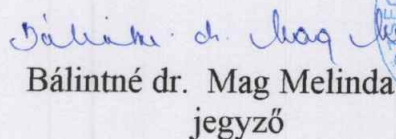 Bálintné dr. Mag
Bálintné dr. Mag Melinda
jegyző